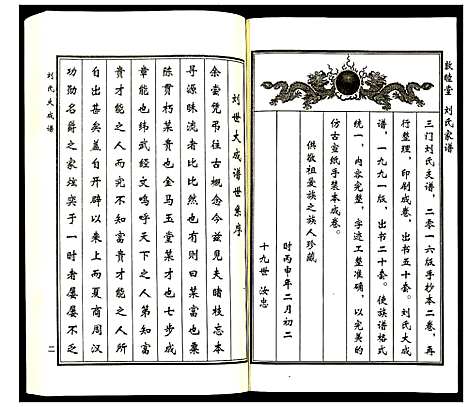 敦睦堂 刘氏家谱
三门刘氏支谱，二零一六版手抄本二卷，再
行整理，印刷成卷，出书二十套。刘氏大成
谱，一九九一版，出书二十套。使族谱格式
统一，内容完整，字迹工整准确，以完美的
仿古宣纸手装本成卷。
供敬祖爱族之族人珍藏
时丙申年二月初二
十九世 汝忠
刘氏大成谱
二
刘世大成谱世系序
余尝凭吊往古概念今兹见夫睹枝忘本
寻源昧流者比比然也有则曰某富也
陈贯朽某贵也金马玉堂某才也七步成
章某能也纬武经文鸣呼天下之人第知富
贵才能之人而究不知富贵才能之人所
自出甚矣盖自开辟以来上而夏商周汉
功勋名爵之家炫奕于一时者屡屡不乏